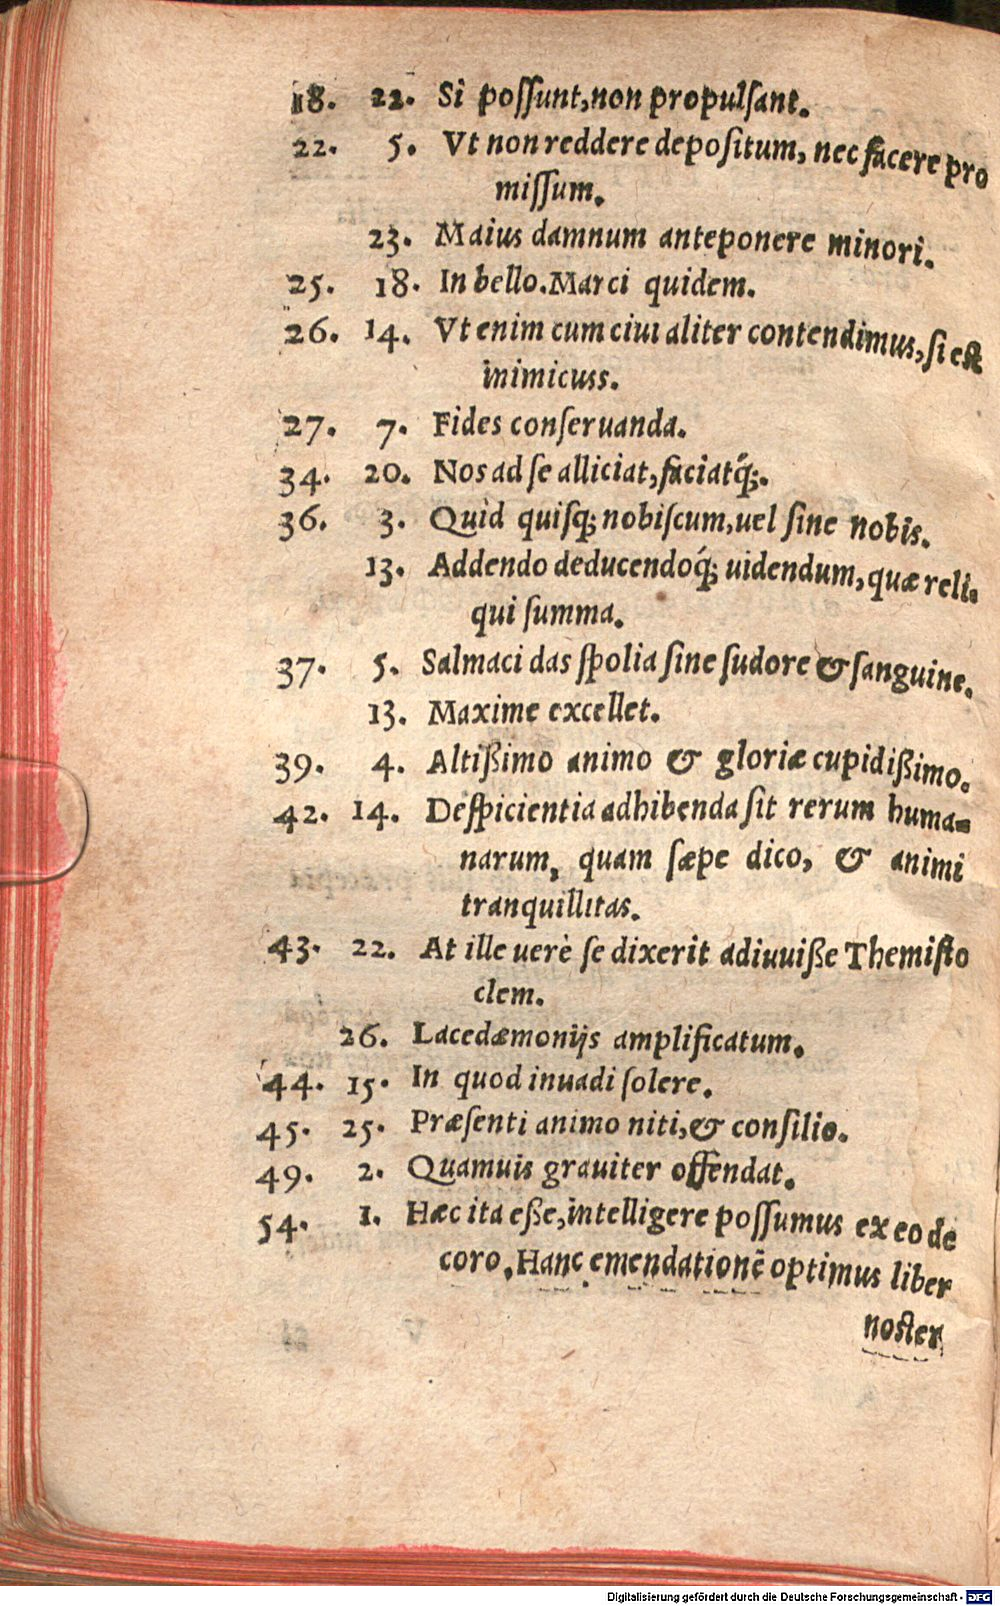 18. 22. Si poſſunt, non propulſant.
22. 5. Vt non reddere depoſitum, nec facere pro
miſſum.
23. Maius damnum anteponere minori.
25. 18. In bello. Marci quidem.
26. 14. Vt enim cum ciui aliter contendimus, ſi eſt
inimicuss.
27. 7. Fides conſeruanda.
34. 20. Nos ad ſe alliciat, faciatq́;.
36. 3. Quid quiſq; nobiſcum, uel ſine nobis.
13. Addendo deducendoq́; uidendum, quæ reli-
qui ſumma.
37. 5. Salmaci das ſpolia ſine ſudore & ſanguine.
13. Maxime excellet.
39. 4. Altißimo animo & gloriæ cupidißimo.
42. 14. Deſpicientia adhibenda ſit rerum huma-
narum, quam ſæpe dico, & animi
tranquillitas.
43. 22. At ille uerè ſe dixerit adiuuiße Themiſto
clem.
26. Lacedæmonijs amplificatum.
44. 15. In quod inuadi ſolere.
45. 25. Præſenti animo niti, & conſilio.
49. 2. Quamuis grauiter offendat.
54. 1. Hæc ita eße, intelligere poſſumus ex eo de
coro, Hanc emendationē optimus liber
noſter
Digitalisierung gefördert durch die Deutsche Forschungsgemeinschaft - DFG